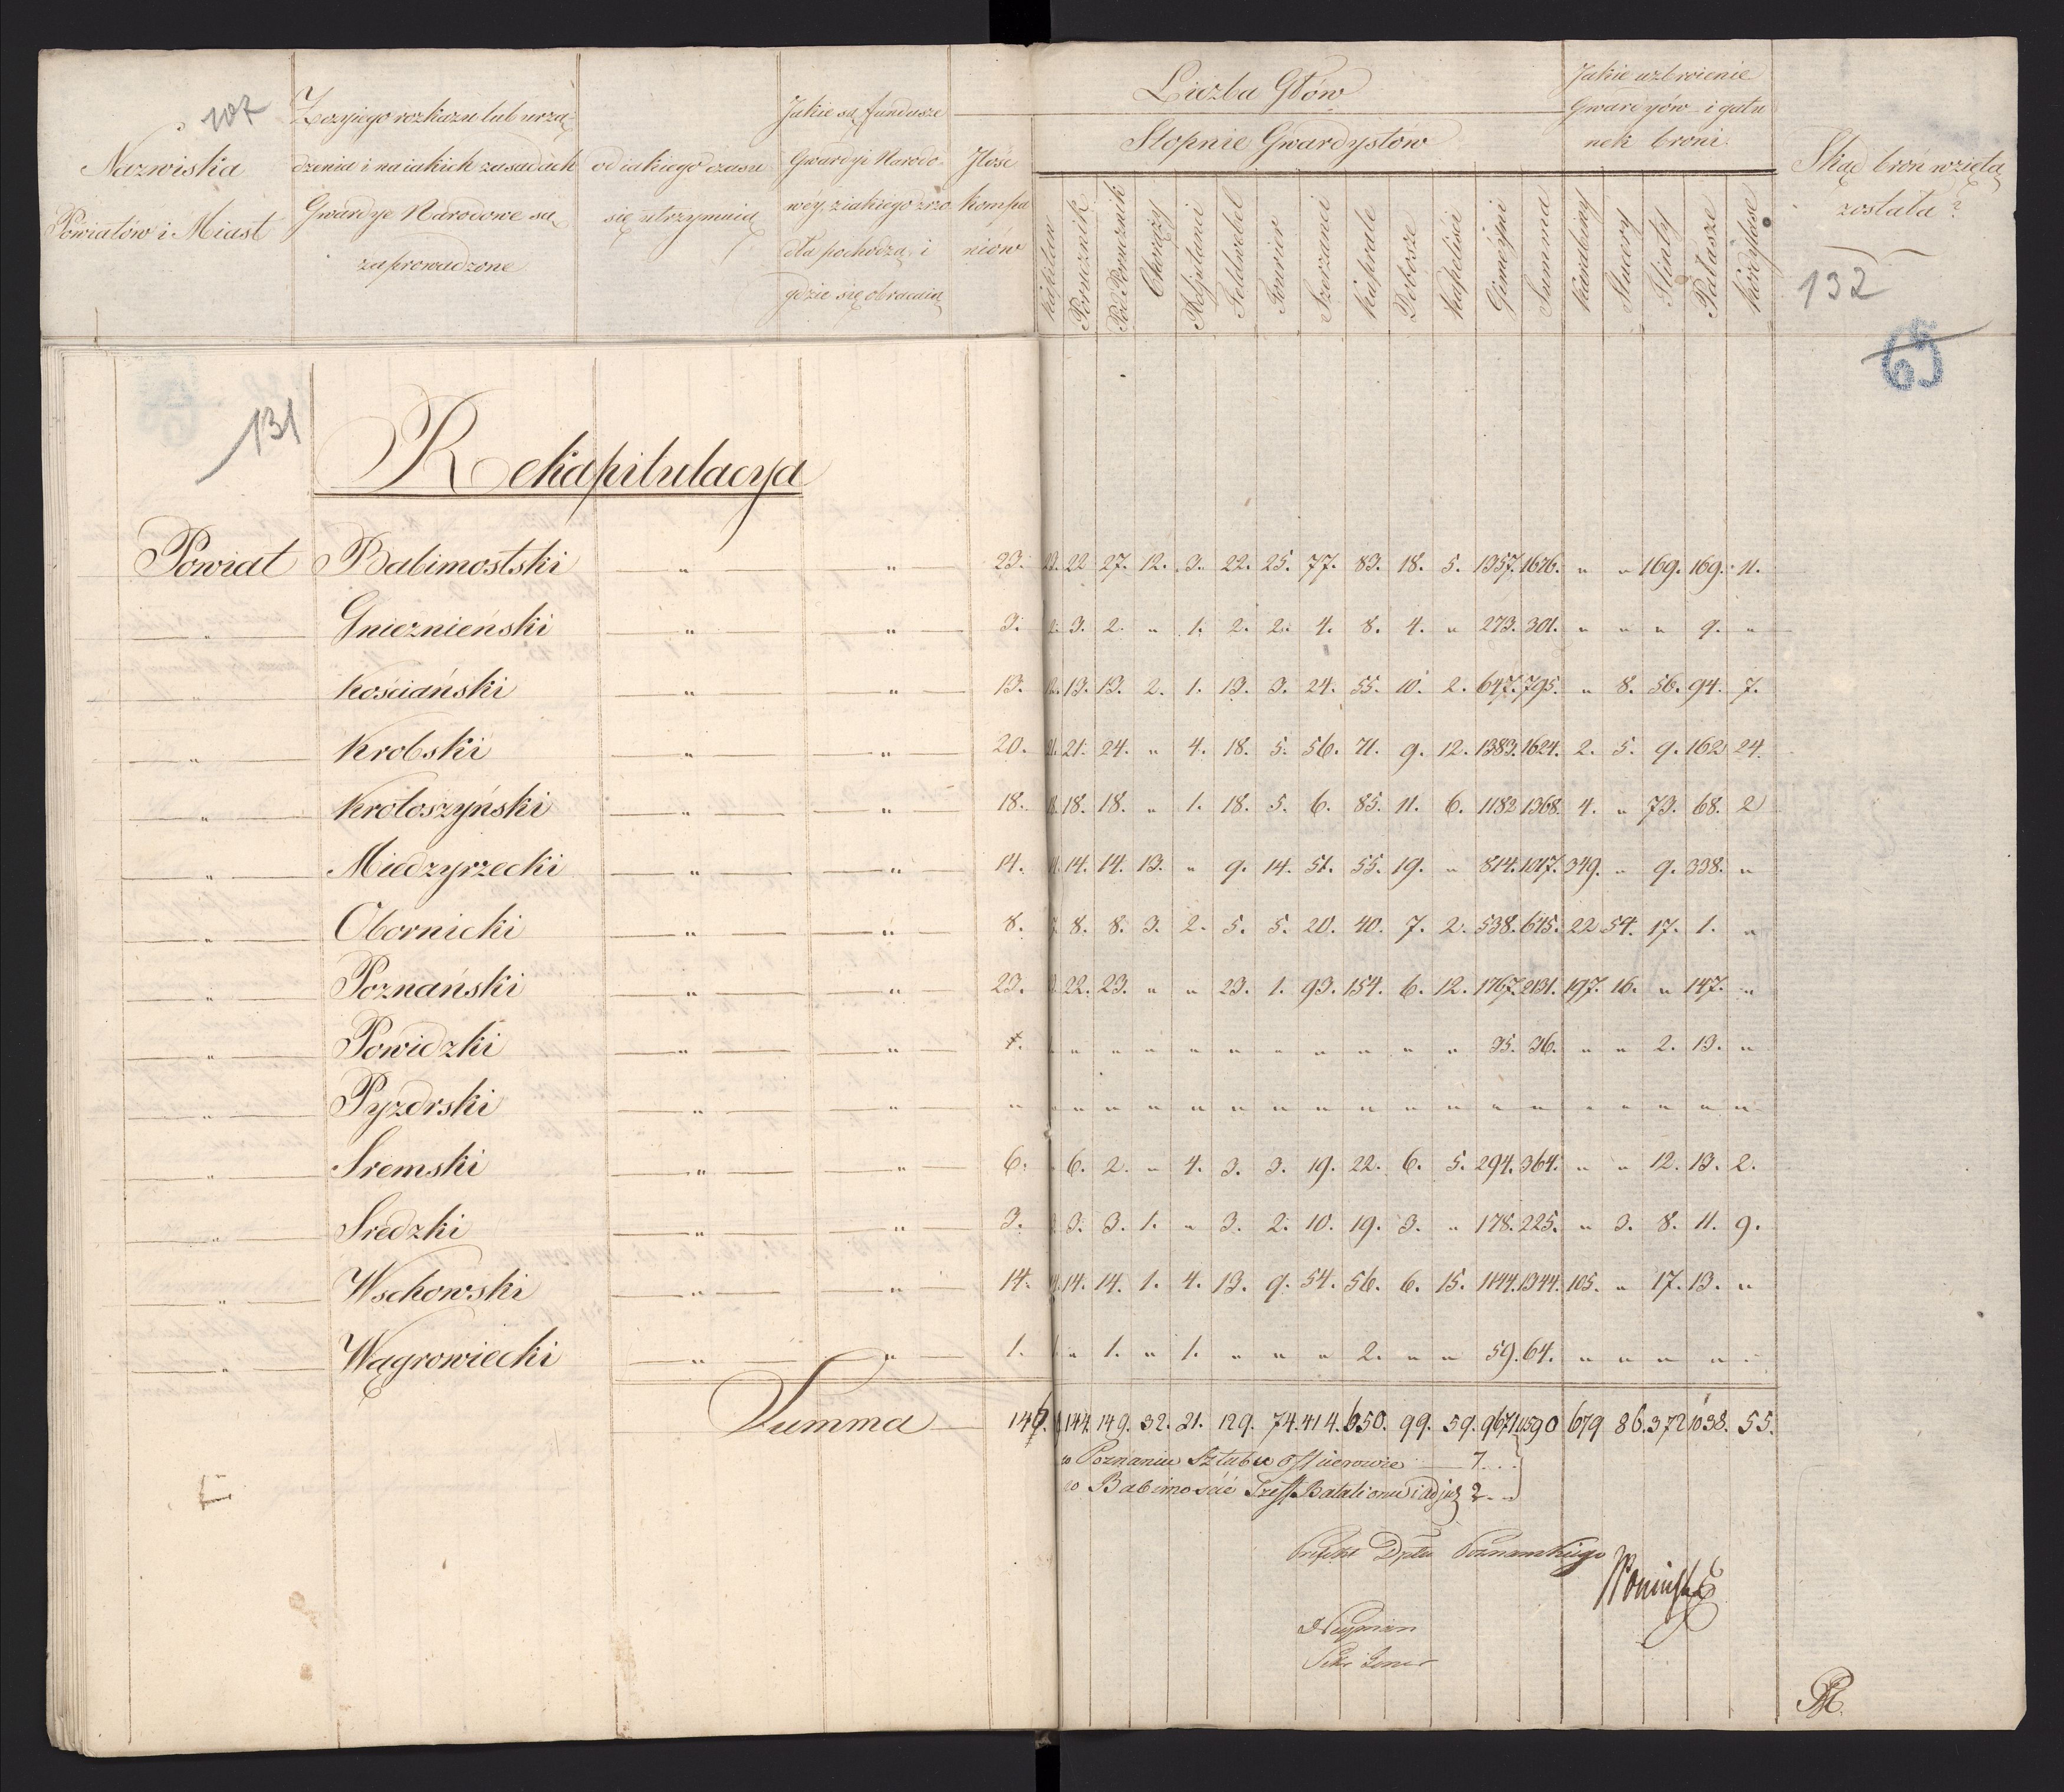 107
Nazwiska
Powiatów i Miast
Z czyjego rozkazu lub urzą-
dzenia i na iakich zasadach
Gwardye Narodowe są
zaprowadzone
od iakiego czasu
się utrzymuią
Jakie są fundusze
Gwardyi Narodo-
wéy, z iakiego zrzo
dła pochodzą i
gdzie się obracaią
Jlość
kompa
niów
Liczba Głów
Stopnie Gwardystów
Kapitan
Porucznik
Pod Porucznik
Chorąży
Adjutenci
Feldwebel
Fourier
Szerżanci
Kaprale
Dobosze
Kapeliści
Gimeyni
Summa
Jakie uzbroienie
Gwardyów i gatu
nek broni.
Karabiny
Stucery
Flinty
Pałasze
Kordylase
Skąd broń wzięta
została?
132
65
131
Rekapitulacya
Powiat Babimostski " " 23. 23. 22. 27. 12. 3. 22. 25. 77. 83. 18. 5. 1357. 1676. " " 169. 169. 11.
" Gnieznieński " " 3. 2. 3. 2. " 1. 2. 2. 4. 8. 4. " 273. 301. " " " 9. "
" Kościański " " 13. 12. 13. 13. 2. 1. 13. 3. 24. 55. 10. 2. 647. 795. " 8. 56. 94. 7.
" Krobski " " 20. 21. 21. 24. " 4. 18. 5. 56. 71. 9. 12. 1383. 1624. 2. 5. 9. 162 24.
" Krotoszyński " " 18. 18. 18. 18. " 1. 18. 5. 6. 85. 11. 6. 1182 1368. 4. " 73. 68. 2
" Miedzyrzecki " " 14. 14. 14. 14. 13. " 9. 14. 51. 55. 19. " 814. 1017. 349. " 9. 338. "
" Obornicki " " 8. 7. 8. 8. 3. 2. 5. 5. 20. 40. 7. 2. 538. 645. 22 54. 17. 1. "
" Poznański " " 23. 22. 23. " " 23. 1. 93. 154. 6. 12. 1767. 2131. 197. 16. " 147. "
" Powidzki " " 1. " " " " " " " " " " " 35. 36. " " 2. 13. "
" Pyzdrski " " " " " " " " " " " " " " " " " " " " "
" Sremski " " 6. 6. 2. " 4. 3. 3. 19. 22. 6. 5. 294. 364. " " 12. 13. 2.
" Sredzki " " 3. 3. 3. 1. " 3. 2. 10. 19. 3. " 178. 225. " 3. 8. 11. 9.
" Wschowski " " 14. 14. 14. 14. 1. 4. 13. 9. 54. 56. 6. 15. 1144. 1344. 105. " 17. 13. "
" Wągrowiecki " " 1. 1. " 1. " 1. " " " 2. " " 59. 64. " " " " "
Summa 146. 144. 149. 32. 21. 129. 74. 414. 650. 99. 59. 9671 11590 679 86. 372 1038. 55.
w Poznaniu Sztabu Officerowie 7.
w Babimośćie Szeff Batalionu i adju 2
Prefekt Dptu Poznanskiego